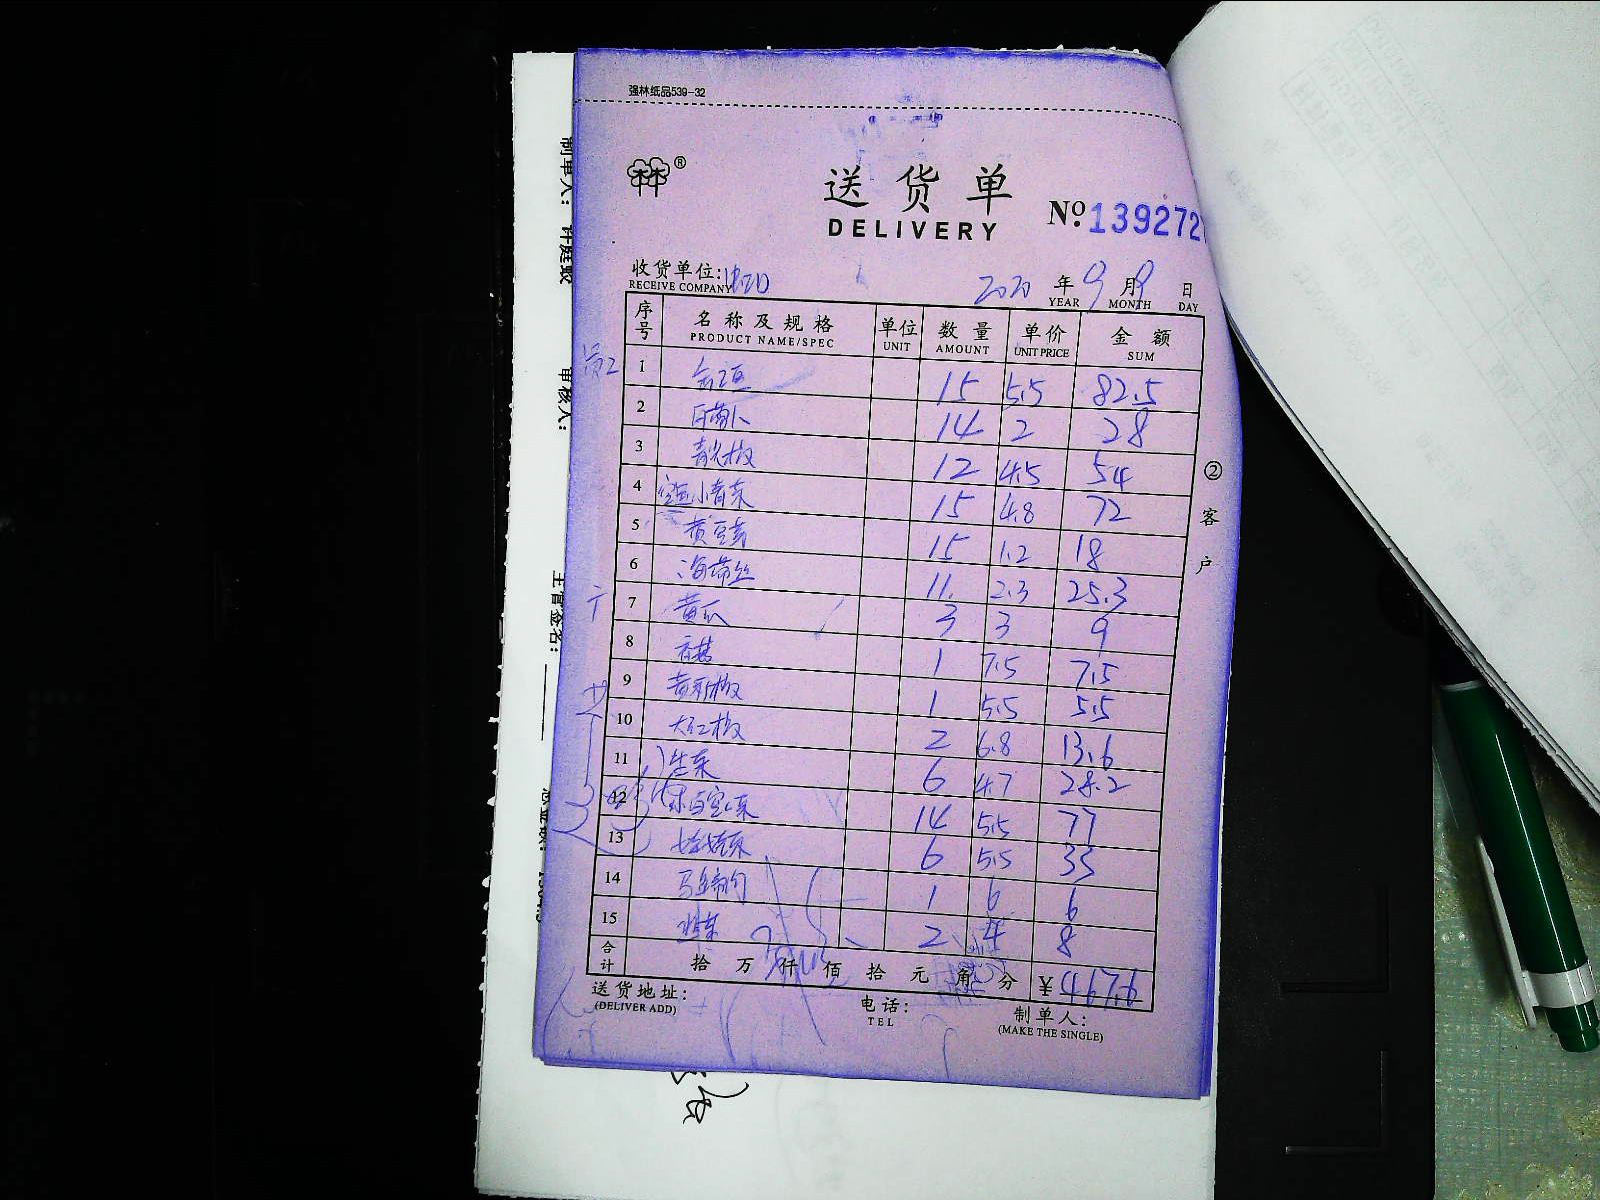 强林纸品539-32
林林®
送货单
DELIVERY
№.139272
收货单位:
RECEIVE COMPANY
2020 年 9 月 9 日
YEAR MONTH DAY
序号 名称及规格 单位 数量 单价 金额
PRODUCT NAME/SPEC UNIT AMOUNT UNIT PRICE SUM
员工
1 15 5.5 82.5
2 白萝卜 14 2 28
3 青尖椒 12 4.5 54
4 小青菜 15 4.8 72
5 黄豆芽 15 1.2 18
6 海带丝 11 2.3 25.3
7 黄瓜 3 3 9
8 香菇 1 7.5 7.5
9 黄彩椒 1 5.5 5.5
10 大红椒 2 6.8 13.6
11 生菜 6 4.7 28.2
12 14 5.5 77
13 6 5.5 33
14 1 6 6
15 2 4 8
合计 拾 万 仟 佰 拾 元 角 分 ¥467.6
②客户
送货地址:
(DELIVER ADD)
电话:
TEL
制单人:
(MAKE THE SINGLE)
制单人: 许庭毅
审核人:
主管签名: